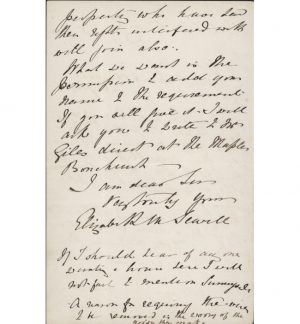 property who have had
their rights interfered with
will join also.
What we want is the
permission to add your
name to the requirement.
If you will give it I will
ask you to write to Mr
Giles direct at the Maples
Bonchurch
I am dear Sir
Very truly yours
Elizabeth M Sewell
If I should hear of any one
wanting a house here I will
not fail to mention
A reason for requiring the
to be removed is the